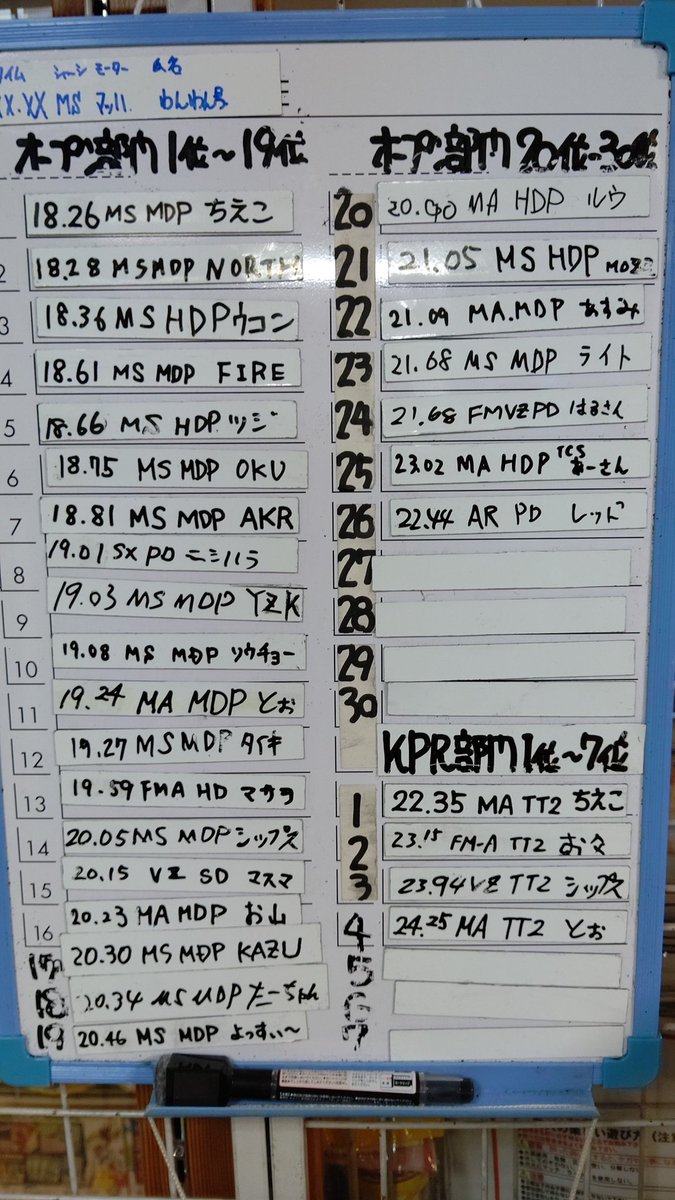 タイム シャーシ モーター 氏名
XX.XX MS マッハ わんわん号
オープン部門 1位～19位
18.26 MS MDP ちえこ
2 18.28 MS MDP NORTH
3 18.36 MS HDP ウコン
4 18.61 MS MDP FIRE
5 18.66 MS HDP ツジ
6 18.75 MS MDP OKU
7 18.81 MS MDP AKR
8 19.01 SX PD ニシハラ
9 19.03 MS MDP YZK
10 19.08 MS MDP ソウチョー
11 19.24 MA MDP とぉ
12 19.27 MS MDP タイキ
13 19.59 FMA HD マサヲ
14 20.05 MS MDP シップス
15 20.15 VZ SD マスマ
16 20.23 MA MDP お山
17 20.30 MS MDP KAZU
18 20.34 MS MDP たーちゃん
19 20.46 MS MDP よっすぃ～
オープン部門 20位-30位
20 20.90 MA HDP ルウ
21 21.05 MS HDP
22 21.09 MA.MDP あすみ
23 21.68 MS MDP ライト
24 21.68 FM VZ PD はるさん
25 23.02 MA HDP TCS あーさん
26 22.44 AR PD レッド
27
28
29
30
KPR部門 1位～7位
1 22.35 MA TT2 ちえこ
2 23.15 FM-A TT2 お々
3 23.94 VZ TT2 シップス
4 24.25 MA TT2 とぉ
5
6
7